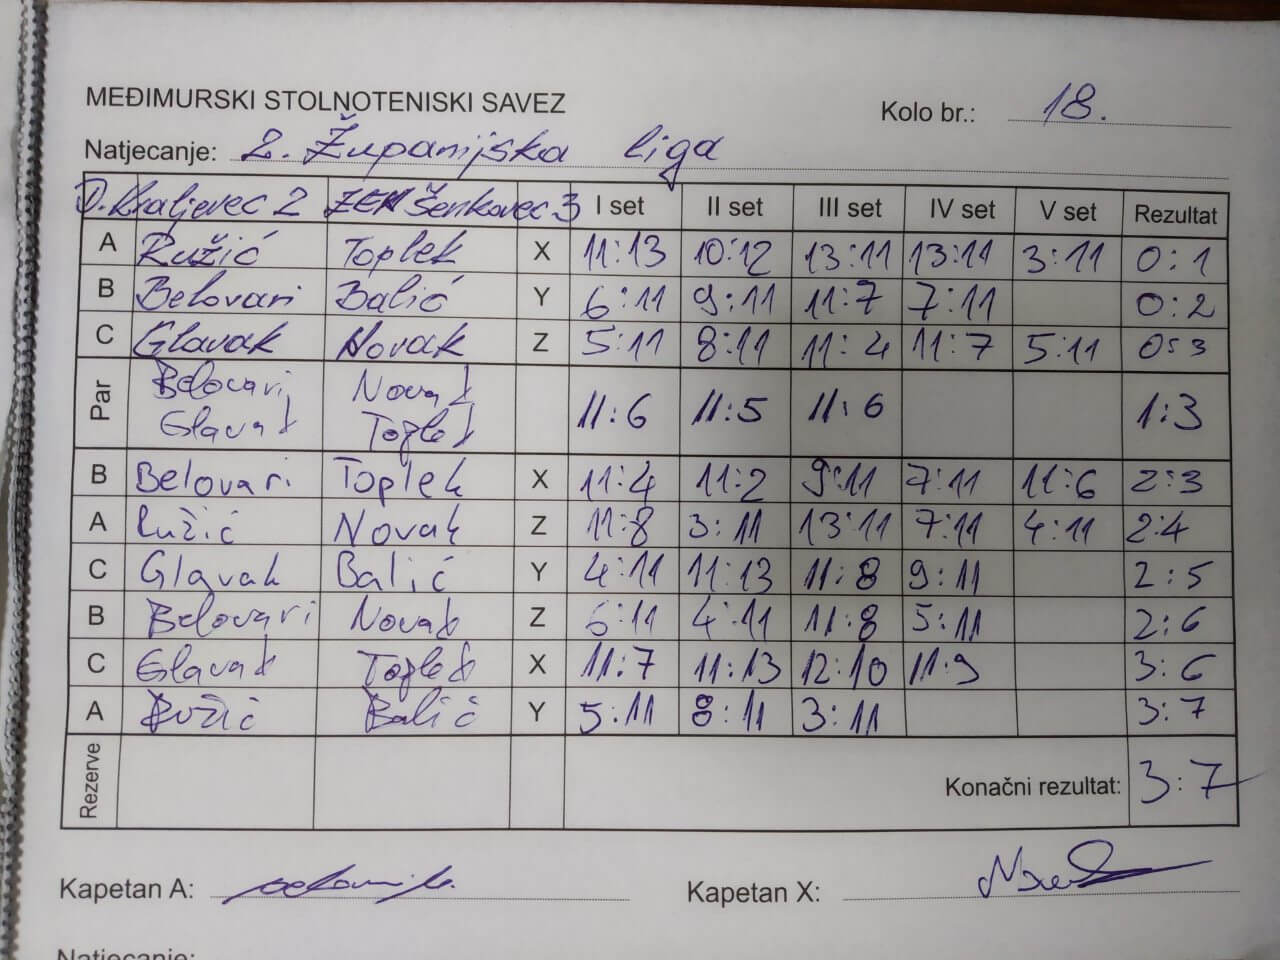 MEĐIMURSKI STOLNOTENISKI SAVEZ
Kolo br.: 18.
Natjecanje: 2. Županijska liga
D. Kraljevec 2 ZEK Šenkovec 3 I set II set III set IV set V set Rezultat
A Ružić Toplek X 11:13 10:12 13:11 13:11 3:11 0:1
B Belovari Balić Y 6:11 9:11 11:7 7:11 0:2
C Glavak Novak Z 5:11 8:11 11:4 11:7 5:11 0:3
Par Belovari Novak 11:6 11:5 11:6 1:3
Glavak Toplek
B Belovari Toplek X 11:4 11:2 9:11 7:11 11:6 2:3
A Ružić Novak Z 11:8 3:11 13:11 7:11 4:11 2:4
C Glavak Balić Y 4:11 11:13 11:8 9:11 2:5
B Belovari Novak Z 6:11 4:11 11:8 5:11 2:6
C Glavak Toplek X 11:7 11:13 12:10 11:9 3:6
A Ružić Balić Y 5:11 8:11 3:11 3:7
Rezerve Konačni rezultat: 3:7
Kapetan A: Kapetan X:
Natjecanje: